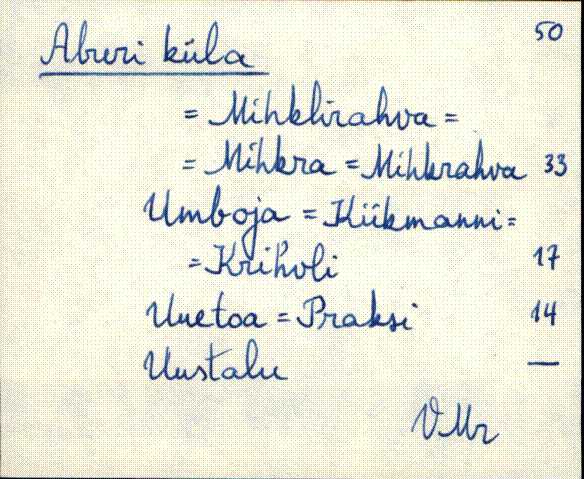 Aburi küla 50
= Mihklirahva =
= Mihkra = Mihkrahva 33
Umboja = Kükmanni =
= Krihvli 17
Uuetoa = Praksi 14
Uustalu —
VMr